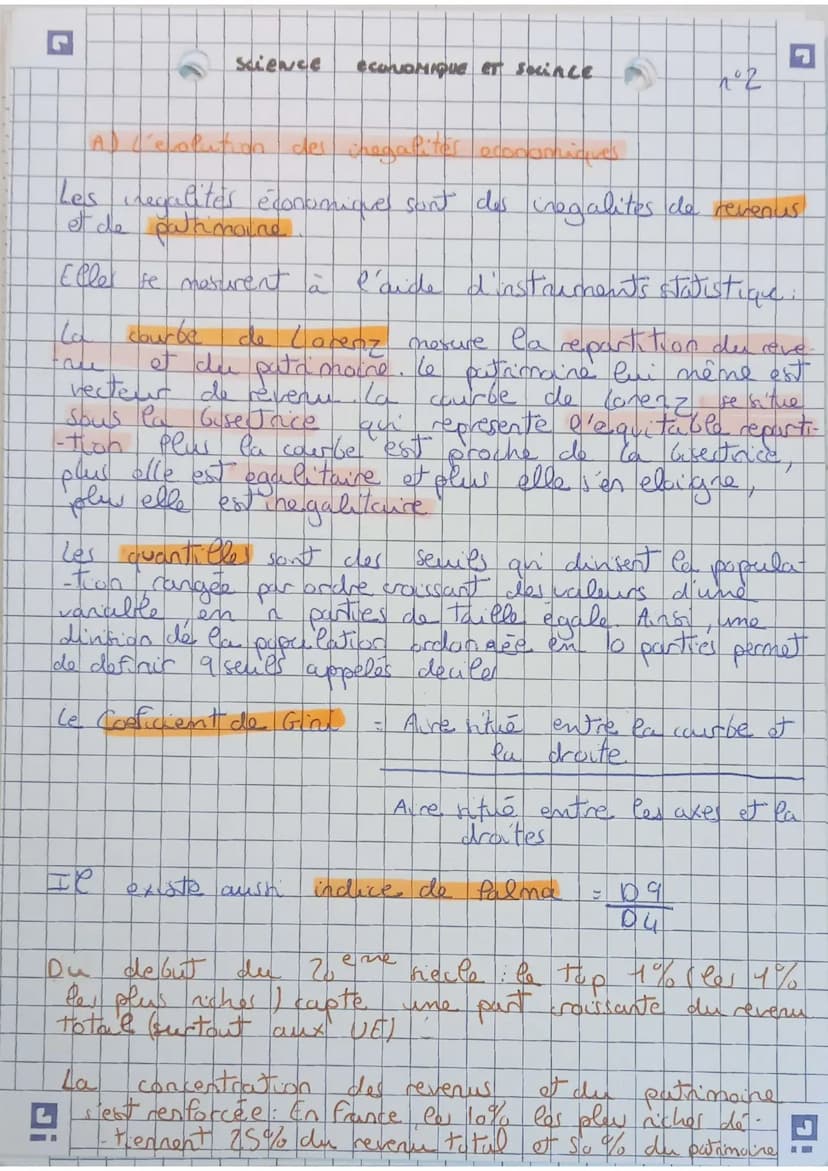 science economique et socince
n°2
A) l'evolution des inegalités economiques
Les inegalités économiques sont des inegalites de revenus
et de patrimoine.
Elles se mesurent à l'aide d'instruments statistique :
La courbe de Lorenz mesure la repartition du reve-
-nu et du patrimoine. Le patrimoine lui même est
vecteur de revenu. La courbe de Lorenz se situe
sous la bisectrice qui represente l'equitable reparti-
-tion plus la courbe est proche de la bisectrice,
plus elle est egalitaire et plus elle s'en elaigne,
plus elle est inegalitaire
Les quantilles sont des seuils qui divisent la popula-
-tion rangée par ordre croissant des valeurs d'une
variable, en n parties de taille égale. Ainsi, une
division de la population ordonnée en 10 parties permet
de definir 9 seuils appelés deciles
Le Coeficient de Gini = Aire situé entre la courbe et
la droite
Aire situé entre les axes et la
droites
Il existe aussi indice de Palma = D9
D4
Du debut du 20eme siecle : le top 1% (les 1%
les plus riches) capte une part croissante du revenu
totale (surtout aux UE)
La concentration des revenus et du patrimoine
s'est renforcée : En france les 10% les plus riches dé-
-tiennent 25% du revenu total et 50% du patrimoine